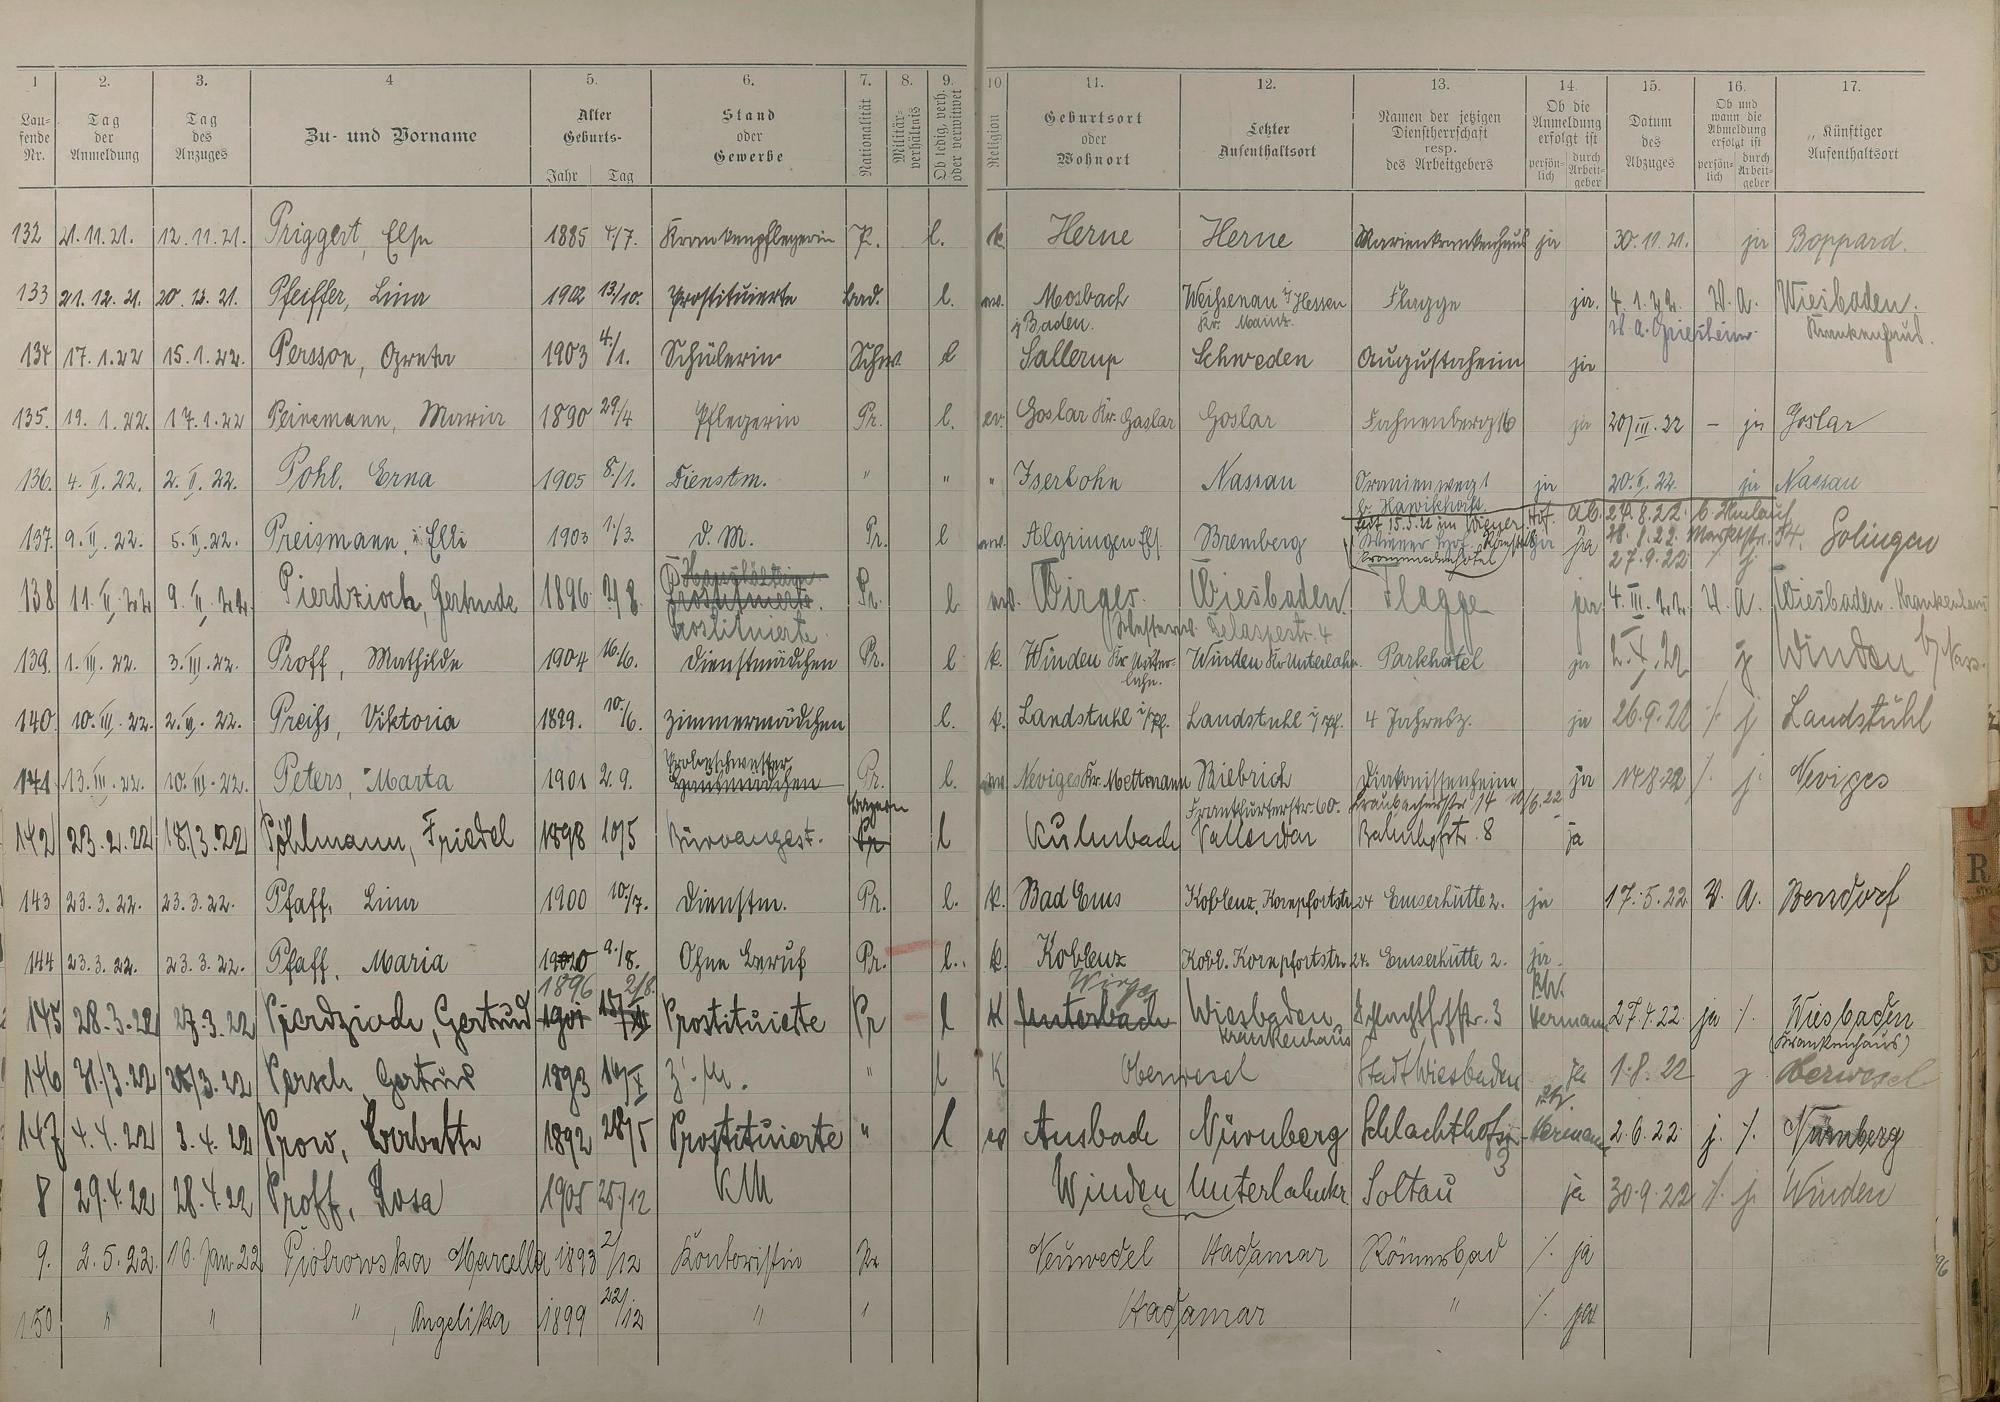 1 2. 3. 4 5. 6. 7. 8. 9. 10 11. 12. 13. 14. 15. 16. 17.
Laufende Nr. Tag der Anmeldung Tag des Anzuges Zu- und Vorname Alter Geburts- Jahr Tag Stand oder Gewerbe Nationalität Militärverhältnis Ob ledig, verh. oder verwitwet Religion Geburtsort oder Wohnort Letzter Aufenthaltsort Namen der jetzigen Dienstherrschaft resp. des Arbeitgebers Ob die Anmeldung erfolgt ist persönlich durch Arbeitgeber Datum des Abzuges Ob und wann die Abmeldung erfolgt ist persönlich durch Arbeitgeber Künftiger Aufenthaltsort
132 21.11.21. 12.11.21. Priggert, Else 1885 4/7. Krankenpflegerin P. l. k. Herne Herne Marienkrankenhaus ja 30.11.21. ja Boppard.
133 21.12.21. 20.12.21. Pfeiffer, Lina 1902 13/10. Prostituierte Bad. l. ev. Mosbach Weißenau i/Hessen Flagge ja. 4.1.22. V. A. Wiesbaden.
i/Baden. Kr. Mainz. Krankenhaus.
134 17.1.22 15.1.22. Persson, Greta 1903 4./1. Schülerin Schw. l Sallerup Schweden Augustaheim ja
135. 19.1.22. 17.1.22 Peinemann, Maria 1890 29./4 Pflegerin Pr. l. ev. Goslar Kr. Goslar Goslar Fahnenberg 16 ja 20/III.22 – ja Goslar
136. 4.II.22. 2.II.22. Pohl, Erna 1905 8./1. Dienstm. " " " Iserlohn Nassau Oranienweg 1 ja 20.V.22. ja Nassau
137. 9.II.22. 5.II.22. Preismann, Elli 1903 1./3. d. M. Pr. l. ev. Algringen Els. Bremberg ja 27.9.22 / j. Solingen
138 11.II.22 9.II.22. Pierdzioch, Gertrude 1896 2/8 Prostituierte. Pr. l ev. Wirges. Wiesbaden. Flagge ja. 4.III.22 V. A. Wiesbaden. Krankenhaus
Prostituierte. Westerw. Delaspestr. 4
139. 1.III.22. 3.III.22. Proff, Mathilde 1904 16./6. Dienstmädchen Pr. l k. Winden Kr. Unterlahn. Winden Kr Unterlahn. Parkhotel ja 2.X.22 j Winden b/Nass.
140. 10.III.22. 2.III.22. Preihs, Viktoria 1899. 10./6. Zimmermädchen l. k. Landstuhl i/Pf. Landstuhl i/Pf. 4 Jahresz. ja 26.9.22 /. j Landstühl
Probeschwester,
141 13.III.22. 10.III.22. Peters, Marta 1901 2.9. Hausmädchen Pr. l. ev. Neviges Kr. Mettmann Biebrich Diakonissenheim ja 14 8 22 /. j. Neviges
Bayern Frankfurterstr. 60. Braubacherstr 14 10/6.22
142 23.2.22 18./3.22 Pöhlmann, Friedel 1898 10/5 Büroangest. Pr l Kulmbach Vallendar Bahnhofstr. 8 ja
143 23.3.22. 23.3.22. Pfaff, Lina 1900 10./7. Dienstm. Pr. l. k. Bad Ems Koblenz, Kornpfortstr. 24 Emserhütte 2. ja 17.5.22 V. A. Bendorf
144 23.3.22. 23.3.22. Pfaff, Maria 1900 9./8. Ohne Beruf Pr. l. k. Koblenz Kobl. Kornpfortstr. 24. Emserhütte 2. ja.
1896 2/8. Wirges
145 28.3.22 27.3.22 Pierdzioch, Gertrud 1901 Prostituierte Pr l K Unterbach Wiesbaden Schlachthofstr. 3 Hermann 27.4.22 ja /. Wiesbaden
Krankenhaus (Krankenhaus)
146 31/3 22 22/3.22 Persch, Gertrud 1893 Z. M. " l K Oberwesel Stadt Wiesbaden ja 1.8.22 j Oberwesel
147 4.4.22 3.4.22 Prow, Babette 1892 28/5 Prostituierte " l ev Ansbach Nürnberg Schlachthofstr. 3 Hermann 2.6.22 j. /. Nürnberg
8 29.4.22 28.4.22 Proff, Rosa 1905 25/12 KM Winden Unterlahnkr. Soltau ja 30.9.22 /. j. Winden
9. 2.5.22. 16. Jan. 22 Piotrowska Marcella 1893 2/12 Kontoristin Pr Neuwedel Hadamar Römerbad /. ja
150 " " " , Angelika 1899 22./12 " " Hadamar " /. ja